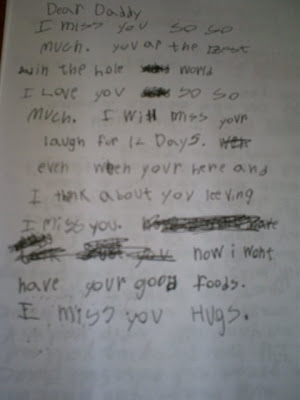 Dear Daddy
I miss you so so
much. you ar the Best
in the hole world
I Love you so so
much. I Will miss your
laugh for 12 Days.
even when your here and
I think about you leeving
I miss you.
now i wont
have your good foods.
I miss you Hugs.